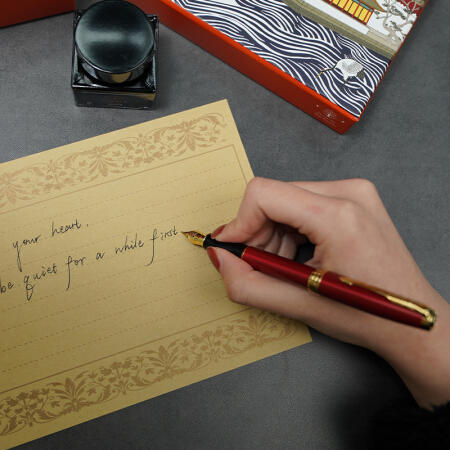 your heart.
be quiet for a while first